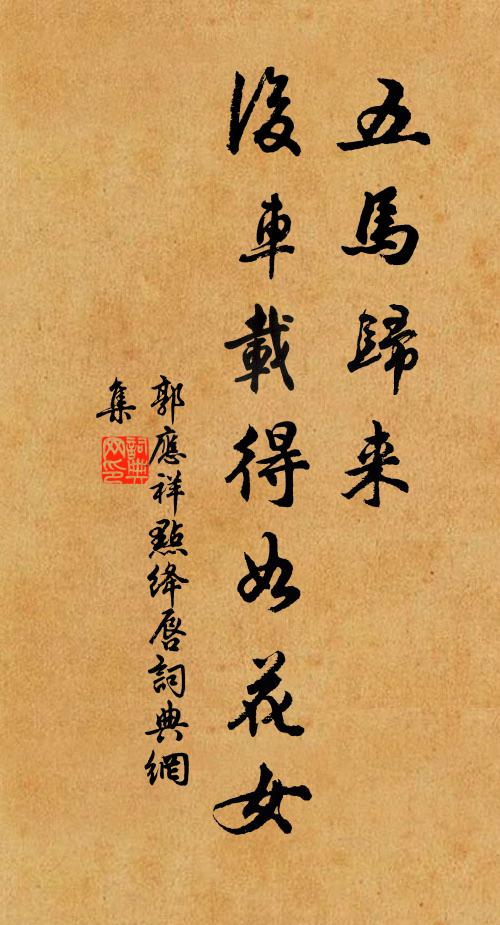 五馬歸来
後車載得如花女
郭應祥點絳唇詞典網
集
詞典網印